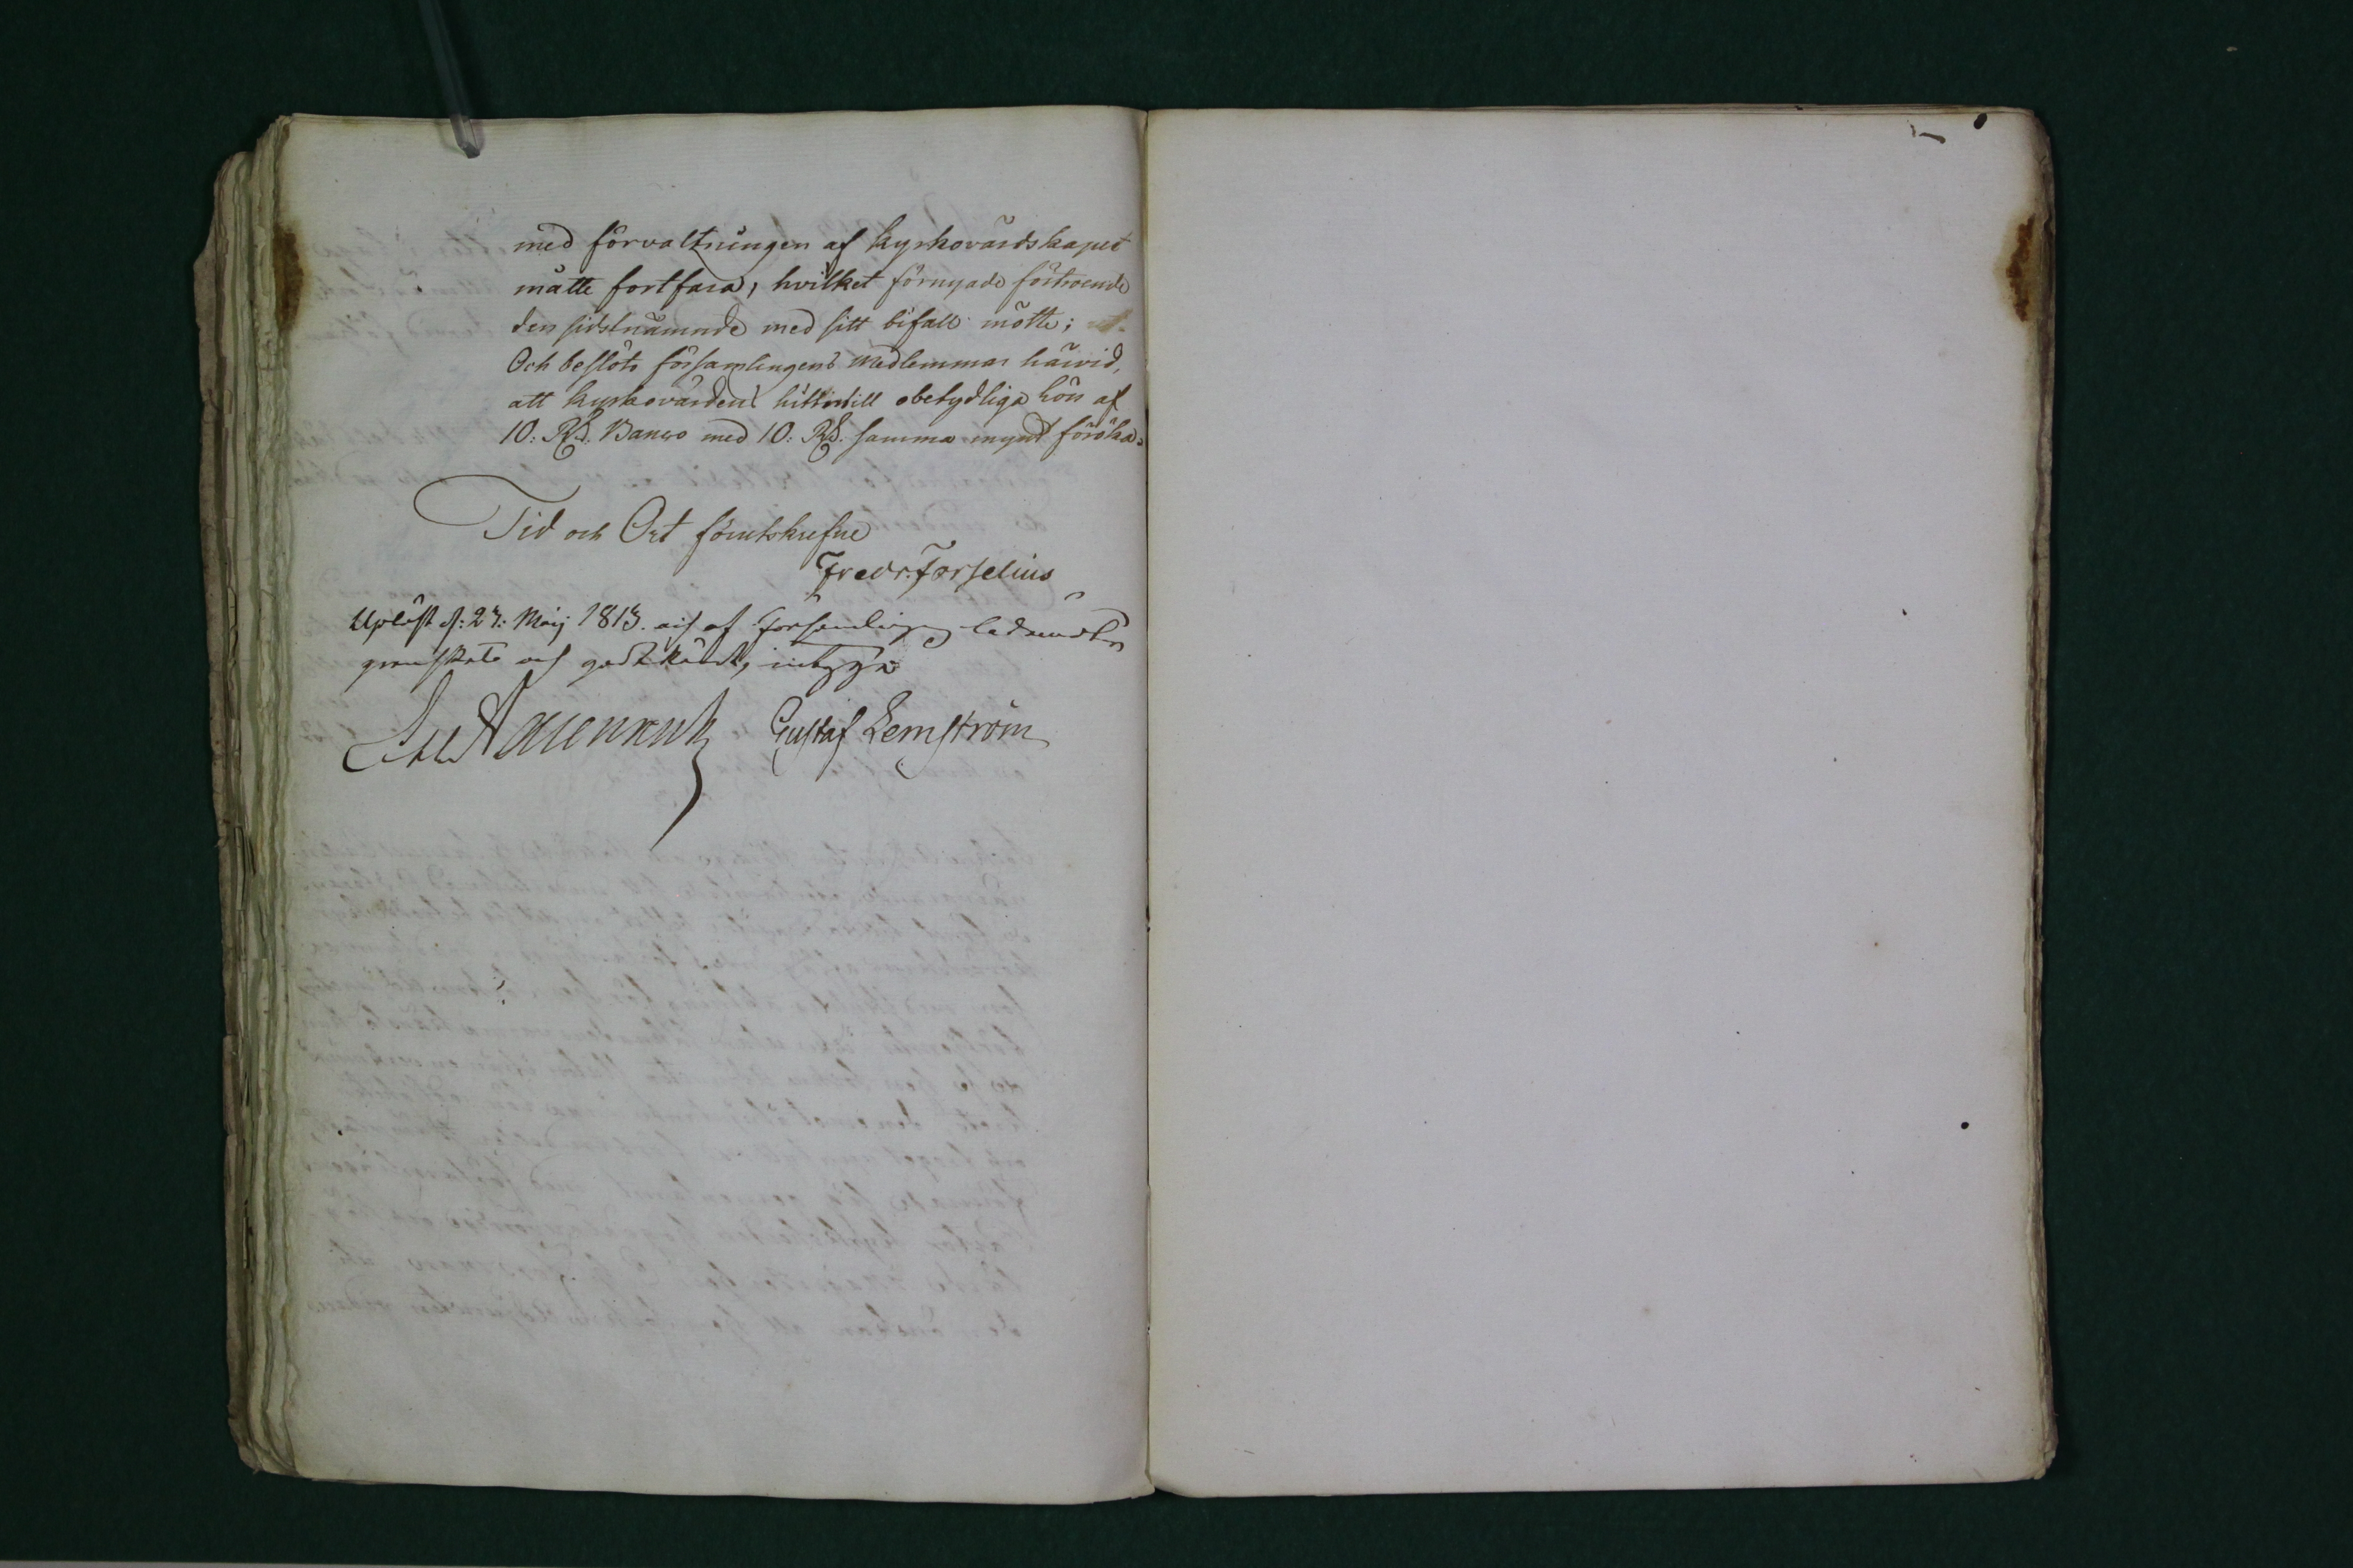 med förvaltningen af kyrkovärdskapet
måtte fortfara, hvilket förnyade förtroende
den sidstnämnde med sitt bifall mötte;
Och beslöts församlingens medlemmar härvid,
att kyrkovärdens hittintill obetydliga lön af
10: Rd. Banco med 10: Rd. samma mynt föröka.
Tid och Ort förutskrefne
Fredr. Forselius
Upläst d: 27: Maij 1813. och af församlingens ledamöter
granskats och godtkändt, intyga
Gustaf Lemström